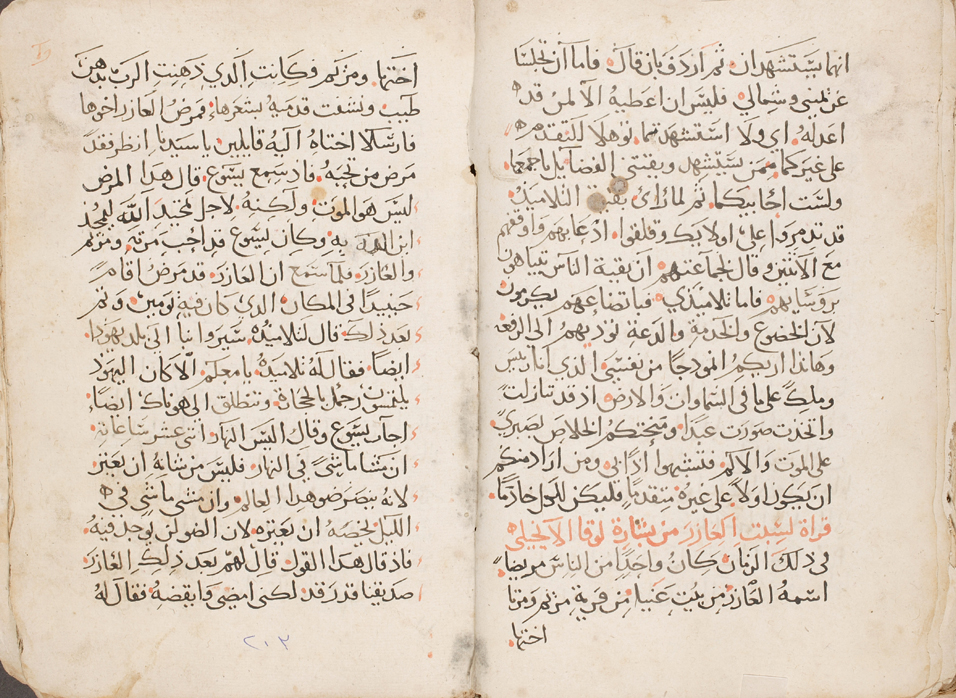 انهما يستشهدان ثم اردف بان قال فاما ان تجلسا
عن يميني وشمالي فليس ان اعطيه الا لمن قد
اعدله اي ولا استشهدتما نوهلا للتقدمه
على غيركما ممن يستشهد ويقتني الفضايل باجمعها
ولست احابيكما ثم لما راي بقية التلاميذ
قد تدمروا على اوليك وقلقوا ادعا بهم واوقفهم
مع الاثنين وقال لجماعتهم ان بقية الناس تتباهى
بروسايهم فاما تلاميذي فباتضاعهم يكرمون
لان الخضوع والخدمة والدعة توديهم الى الرفعه
وهانذا اريكم انمودجا من نفسي الذي انا ريس
وملك على ما في السماوات والارض اذ قد تنازلت
واتخدت صورت عبدا ومنحتكم الخلاص بصبري
على الموت والالم فتشبهوا اذا بي ومن اراد منكم
ان يكون اولا على غيره متقدما فليكن للكل خادما
قراة لسبت العازر من بشارة لوقا الانجيلي
في ذلك الزمان كان واحدا من الناس مريضا
اسمه العازر من بيت عنيا من قرية مريم ومرتا
اختها
اختها ومريم وكانت الذي دهنت الرب بدهن
طيب ونشفت قدميه بشعرها فمرض العازر اخوها
فارسلا اختاه اليه قايلين يا سيدنا انظر فقد
مرض من تحبه فاذ سمع يسوع قال هدا المرض
ليس هو الموت ولكنه لاجل تمجيد الله ليمجد
ابن الله به وكان يسوع قد احب مرته ومريم
والعازر فلما ستمع ان العازر قد مرض اقام
حينيدا في المكان الدي كان فيه يومين وثم
بعد ذلك قال لتلاميده سيروا بنا الى بلد يهودا
ايضا فقال له تلاميذه يا معلم الان كان اليهود
يلتمسون رجمك بالحجاره وتنطلق الى هوناك ايضا
اجاب يسوع وقال اليس النهار اثني عشر ساعاته
ان مشا ماشي في النهار فليس من شانه ان يعتر
لانه يبصر ضو هدا العالم وان مشى ماشي في
الليل لخصه ان يعتره لان الضو لن يوجد فيه
فاذ قال هدا القول قال لهم بعد ذلك العازر
صديقنا قد رقد لكني امضي وايقضه فقال له
٢٠٣